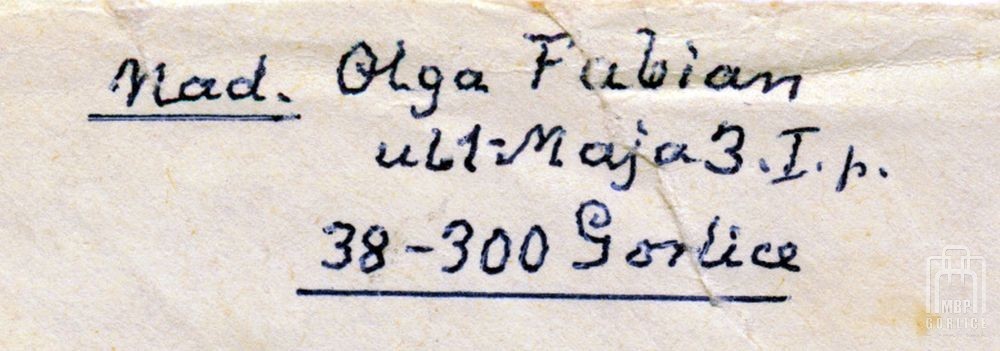 Nad. Olga Fabian
ul 1-Maja 3. I. p.
38-300 Gorlice
MBP
GORLICE